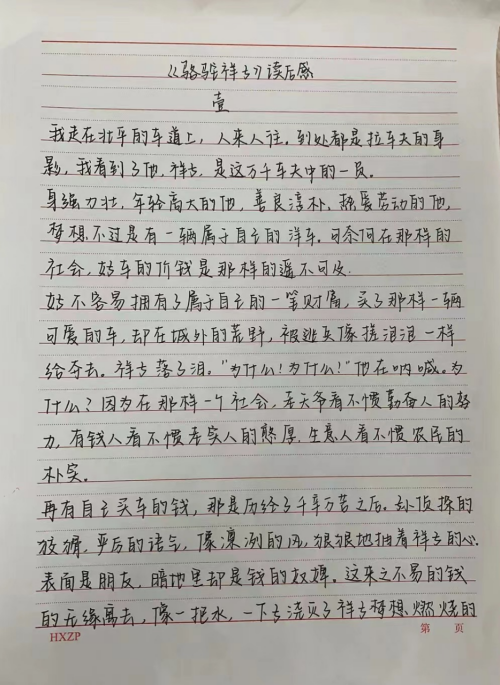 《骆驼祥子》读后感
壹
我走在北平的车道上，人来人往。到处都是拉车夫的身
影，我看到了他，祥子，是这万千车夫中的一员。
身强力壮，年轻高大的他，善良淳朴、热爱劳动的他，
梦想不过是有一辆属于自己的洋车。可奈何在那样的
社会，好车的价钱是那样的遥不可及.
好不容易拥有了属于自己的一笔财富，买了那样一辆
可爱的车，却在城外的荒野，被逃兵像搓泪泪一样
给夺去。祥子落了泪。"为什么！为什么！"他在呐喊。为
什么？因为在那样一个社会，老天爷看不惯勤奋人的努
力，有钱人看不惯老实人的憨厚，生意人看不惯农民的
朴实。
再有自己买车的钱，那是历经了千辛万苦之后。孙侦探的
狡猾，严厉的语气，像凛冽的风，狠狠地拥着祥子的心.
表面是朋友，暗地里却是钱的奴婢。这来之不易的钱
的无缘离去，像一把水，一下子浇灭了祥子梦想燃烧的
HXZP
第 页